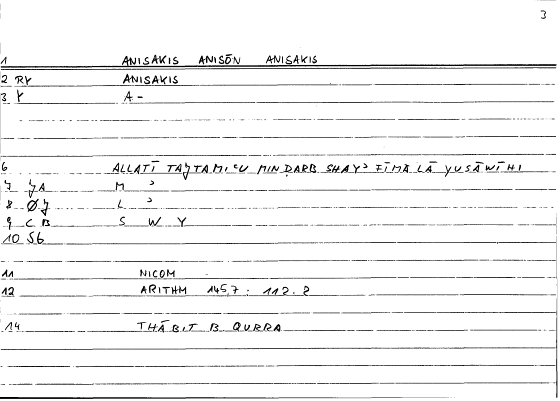 3
1 ANISAKIS ANISŌN ANISAKIS
2 RY ANISAKIS
3 Y A-
6 ALLATĪ TAJTAMIʿU MIN ḌARB SHAYʾ FĪMĀ LĀ YUSĀWĪHI
7 JA M ʾ
8 ØJ L ʾ
9 CB S W Y
10 56
11 NICOM
12 ARITHM 145,7 : 112.2
14 THĀBIT B QURRA